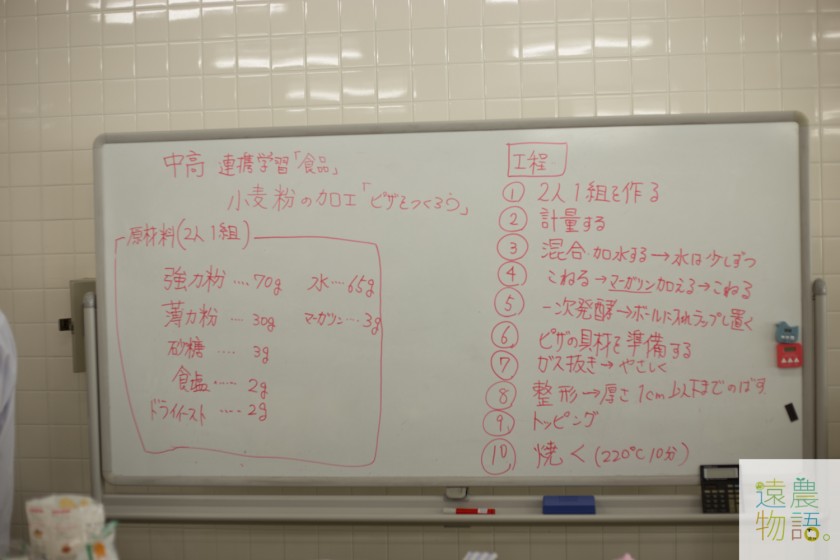 中高 連携学習「食品」
小麦粉の加工「ピザをつくろう」
原材料(2人1組)
強力粉 .... 70g 水 .... 65g
薄力粉 ... 30g マーガリン ... 3g
砂糖 .... 3g
食塩 ..... 2g
ドライイースト ..... 2g
工程
① 2人1組を作る
② 計量する
③ 混合・加水する→水は少しずつ
④ こねる→マーガリン加える→こねる
⑤ 一次発酵→ボールに入れラップし置く
⑥ ピザの具材を準備する
⑦ ガス抜き→やさしく
⑧ 整形→厚さ1cm以下までのばす
⑨ トッピング
⑩ 焼く(220℃10分)
遠農
物語。